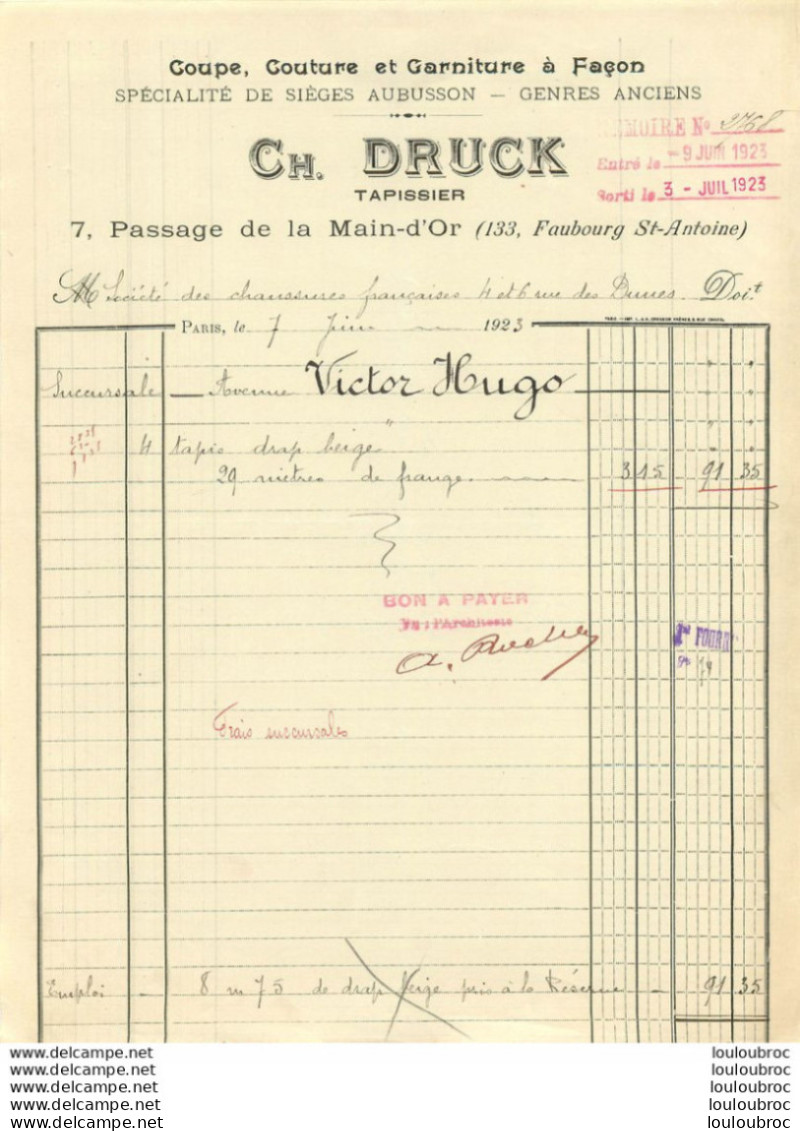 Coupe, Couture et Garniture à Façon
SPÉCIALITÉ DE SIÈGES AUBUSSON — GENRES ANCIENS
MÉMOIRE No 2768
CH. DRUCK
Entré le - 9 JUIN 1923
TAPISSIER
Sorti le 3 - JUIL 1923
7, Passage de la Main-d'Or (133, Faubourg St-Antoine)
M Société des chaussures françaises 4 et 6 rue des Dunes. Doit
PARIS, le 7 Juin 1923
Succursale — Avenue Victor Hugo
4 tapis drap beige
29 mètres de frange 3 15 91 35
BON A PAYER
Vu : l'Architecte
Frais succursales
Emploi - 8 m 75 de drap beige pris à la Réserve - 91 35
www.delcampe.net louloubroc
www.delcampe.net louloubroc
www.delcampe.net louloubroc
www.delcampe.net louloubroc
www.delcampe.net louloubroc